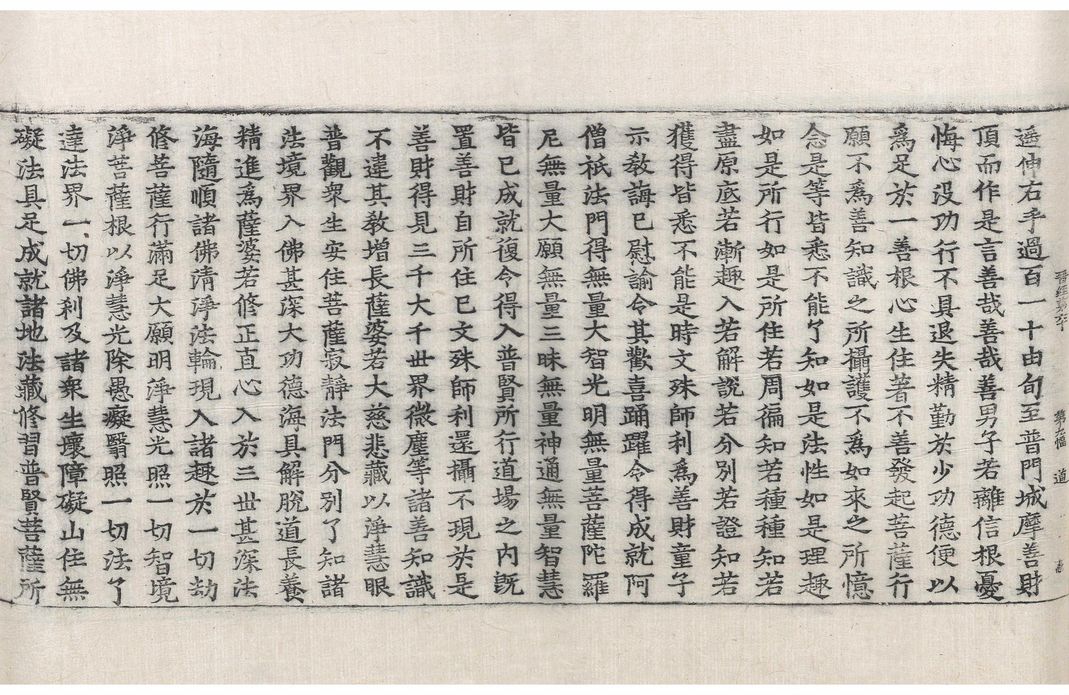 遥伸右手過百一十由旬至普門城摩善財
頂而作是言善哉善哉善男子若離信根憂
悔心没功行不具退失精勤於少功德便以
爲足於一善根心生住著不善發起菩薩行
願不爲善知識之所攝護不爲如來之所憶
念是等皆悉不能了知如是法性如是理趣
如是所行如是所住若周徧知若種種知若
盡原底若漸趣入若解說若分別若證知若
獲得皆悉不能是時文殊師利爲善財童子
示教誨已慰諭令其歡喜踊躍令得成就阿
僧祇法門得無量大智光明無量菩薩陀羅
尼無量大願無量三昧無量神通無量智慧
皆已成就復令得入普賢所行道場之内旣
置善財自所住已文殊師利還攝不現於是
善財得見三千大千世界微塵等諸善知識
不違其教增長薩婆若大慈悲藏以淨慧眼
普觀衆生安住菩薩寂静法門分別了知諸
法境界入佛甚深大功德海具解脫道長養
精進爲薩婆若修正直心入於三世甚深法
海隨順諸佛清淨法輪現入諸趣於一切劫
修菩薩行滿足大願明淨慧光照一切智境
淨菩薩根以淨慧光除愚癡瞖照一切法了
達法界一切佛刹及諸衆生壞障礙山住無
礙法具足成就諸地法藏修習普賢菩薩所